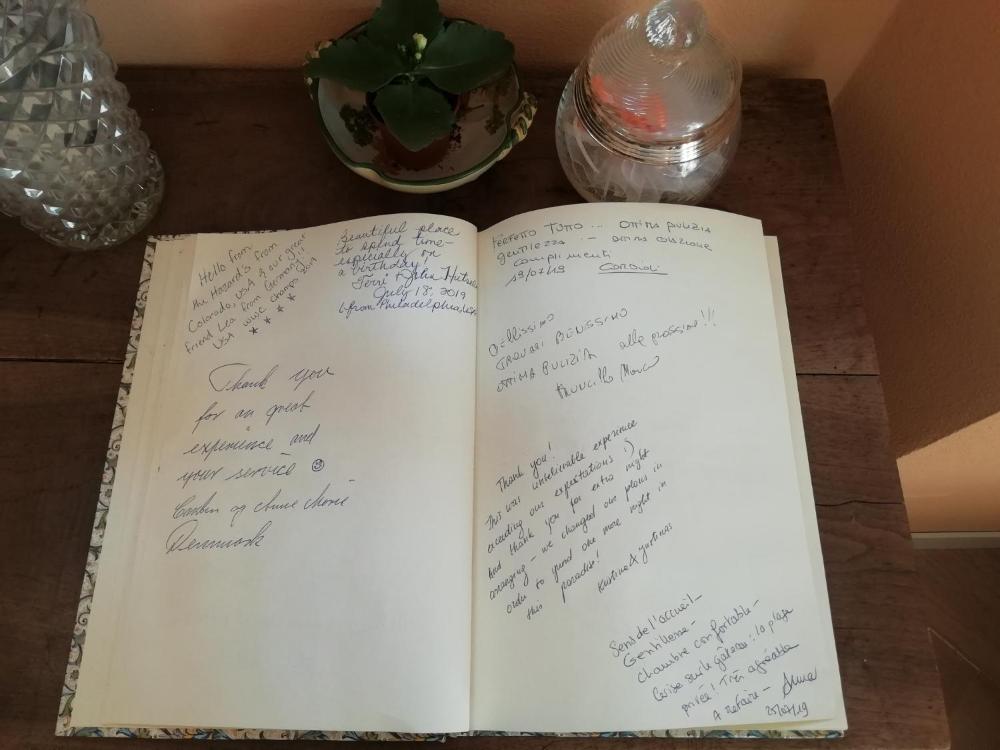 Hello from
the Hazard's from
Colorado, USA & our great
friend Lea from Germany!!!
USA WWC Champs 2019
Beautiful place
to spend time—
especially on
a birthday!
Terri & John
July 18, 2019
from Philadelphia
Thank you
for an great
experience and
your service
og Anne Marie
Denmark
PERFETTO TUTTO... OTTIMA PULIZIA
gentilezza - OTTIMA COLAZIONE
complimenti
19/07/19
Bellissimo
TROVARSI BENISSIMO
OTTIMA PULIZIA alla prossima!!!
Thank you!
This was unbelievable experience
exceeding our expectations :)
And thank you for extra night
arranging - we changed our plans in
order to spend one more night in
this paradise!
& Justinas
Sens de l'accueil -
Gentillesse -
Chambre confortable -
Cerise sur le gâteau : la plage
privée ! Très agréable
A refaire - Anna
25/07/19